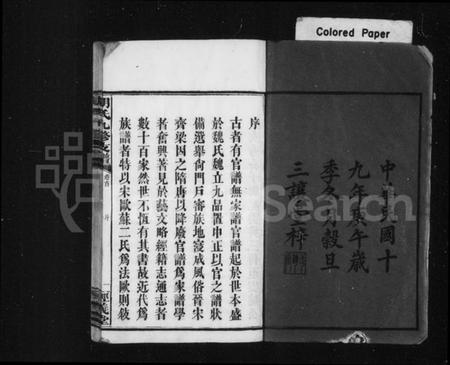 Colored Paper
中華民國十
九年庚午歲
季冬月穀旦
三讓堂梓
序
古者有官譜無家譜官譜起於世本盛
於魏氏魏立九品置中正以官之譜狀
備選舉尙門戶審族地寖成風俗晉宋
齊梁因之隋唐以降廢官譜爲家譜學
者奮興著見於藝文略經籍志通志者
數十百家然世不恆有其書故近代爲
族譜者特以宋歐蘇二氏爲法歐則敍
胡氏九修支譜
卷首
序
MyHeritage Search